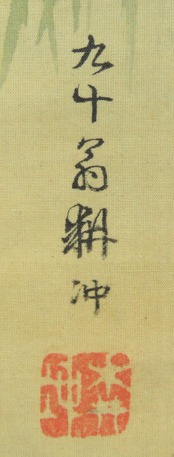 九十翁耕冲